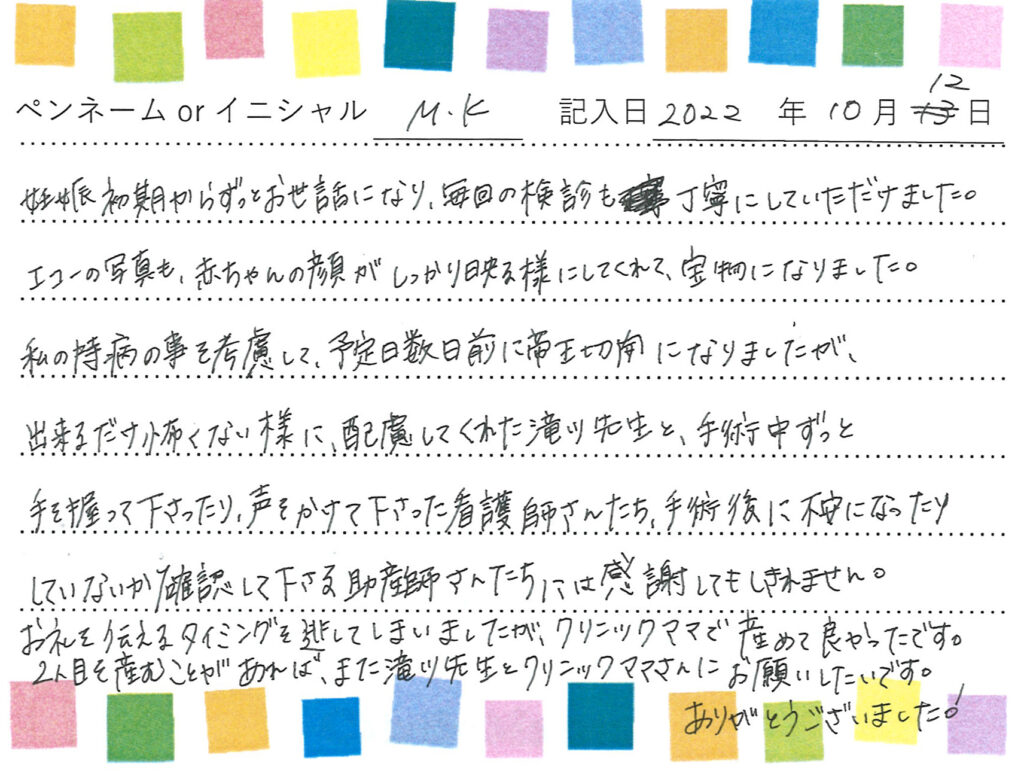 ペンネーム or イニシャル M.K 記入日 2022 年 10 月 12 日
妊娠初期からずっとお世話になり、毎回の検診も丁寧にしていただけました。
エコーの写真も、赤ちゃんの顔がしっかり映る様にしてくれて、宝物になりました。
私の持病の事を考慮して、予定日数日前に帝王切開になりましたが、
出来るだけ怖くない様に、配慮してくれた滝ツ先生と、手術中ずっと
手を握って下さったり、声をかけて下さった看護師さんたち、手術後に不安になったり
していないか確認して下さる助産師さんたちには感謝してもしきれません。
お礼を伝えるタイミングを逃してしまいましたが、クリニックママで産めて良かったです。
2人目を産むことがあれば、また滝ツ先生とクリニックママさんにお願いしたいです。
ありがとうございました!